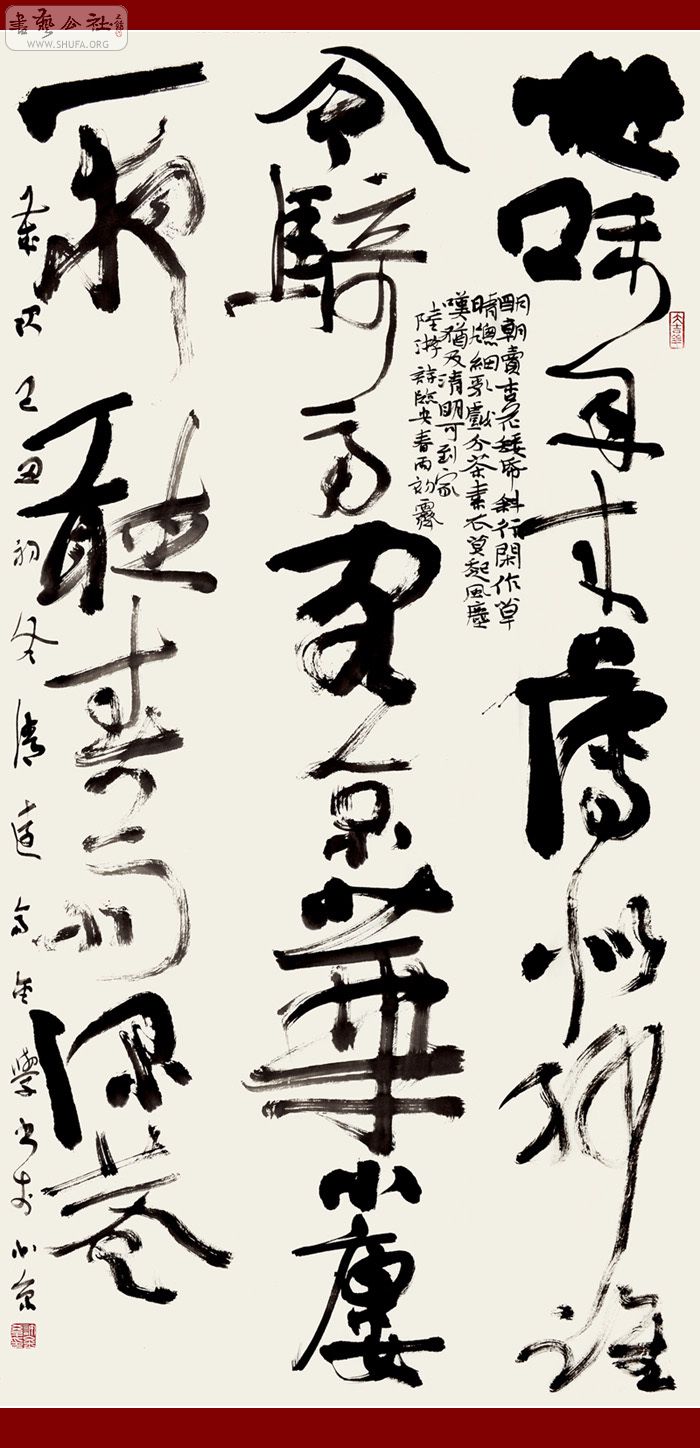 書藝公社
WWW.SHUFA.ORG
世味年来薄似紗誰
令騎馬客京華小廔
一夜聽春雨深巷
明朝賣杏花矮帋斜行閑作草
晴牕細乳戲分茶素衣莫起風塵
嘆猶及清明可到家
陸游詩臨安春雨初霽
歲次己丑初冬清遠金學書於北京